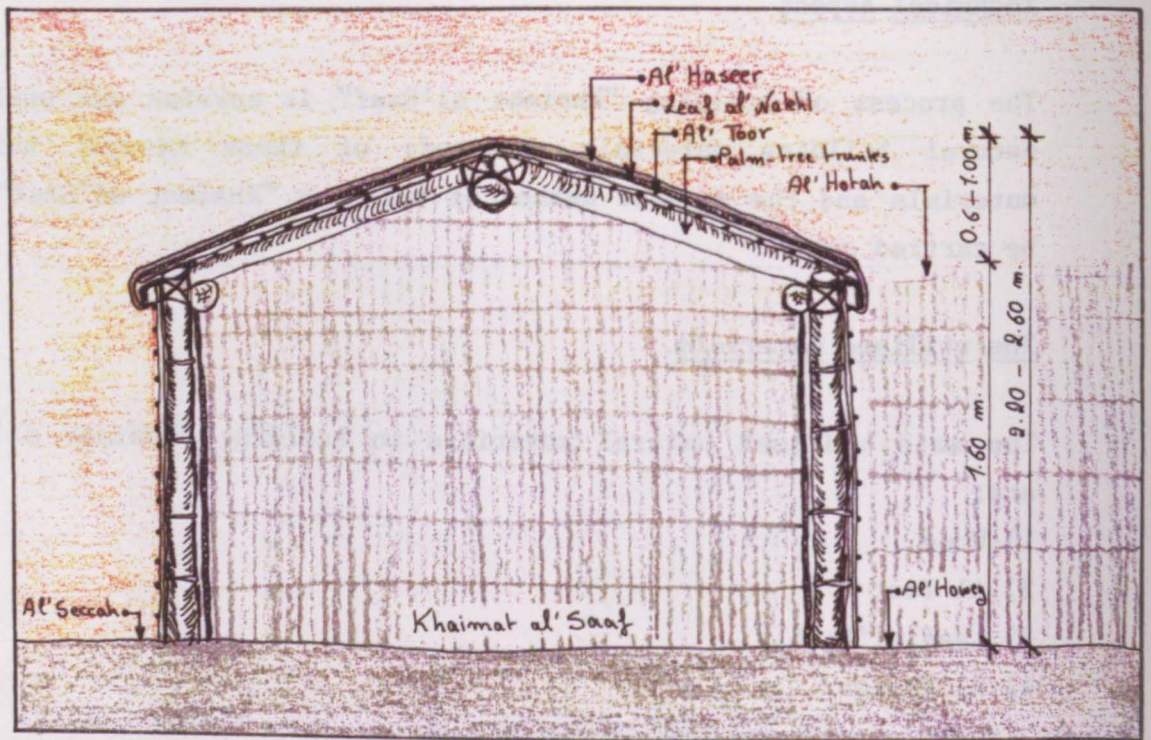 Al' Haseer
Leaf al' Nakhl
Al' Toor
Palm-tree trunks
Al' Hotah
0.6 - 1.00 m.
1.60 m.
2.20 - 2.60 m.
Al' Seccah
Khaimat al' Saaf
Al' Howeg